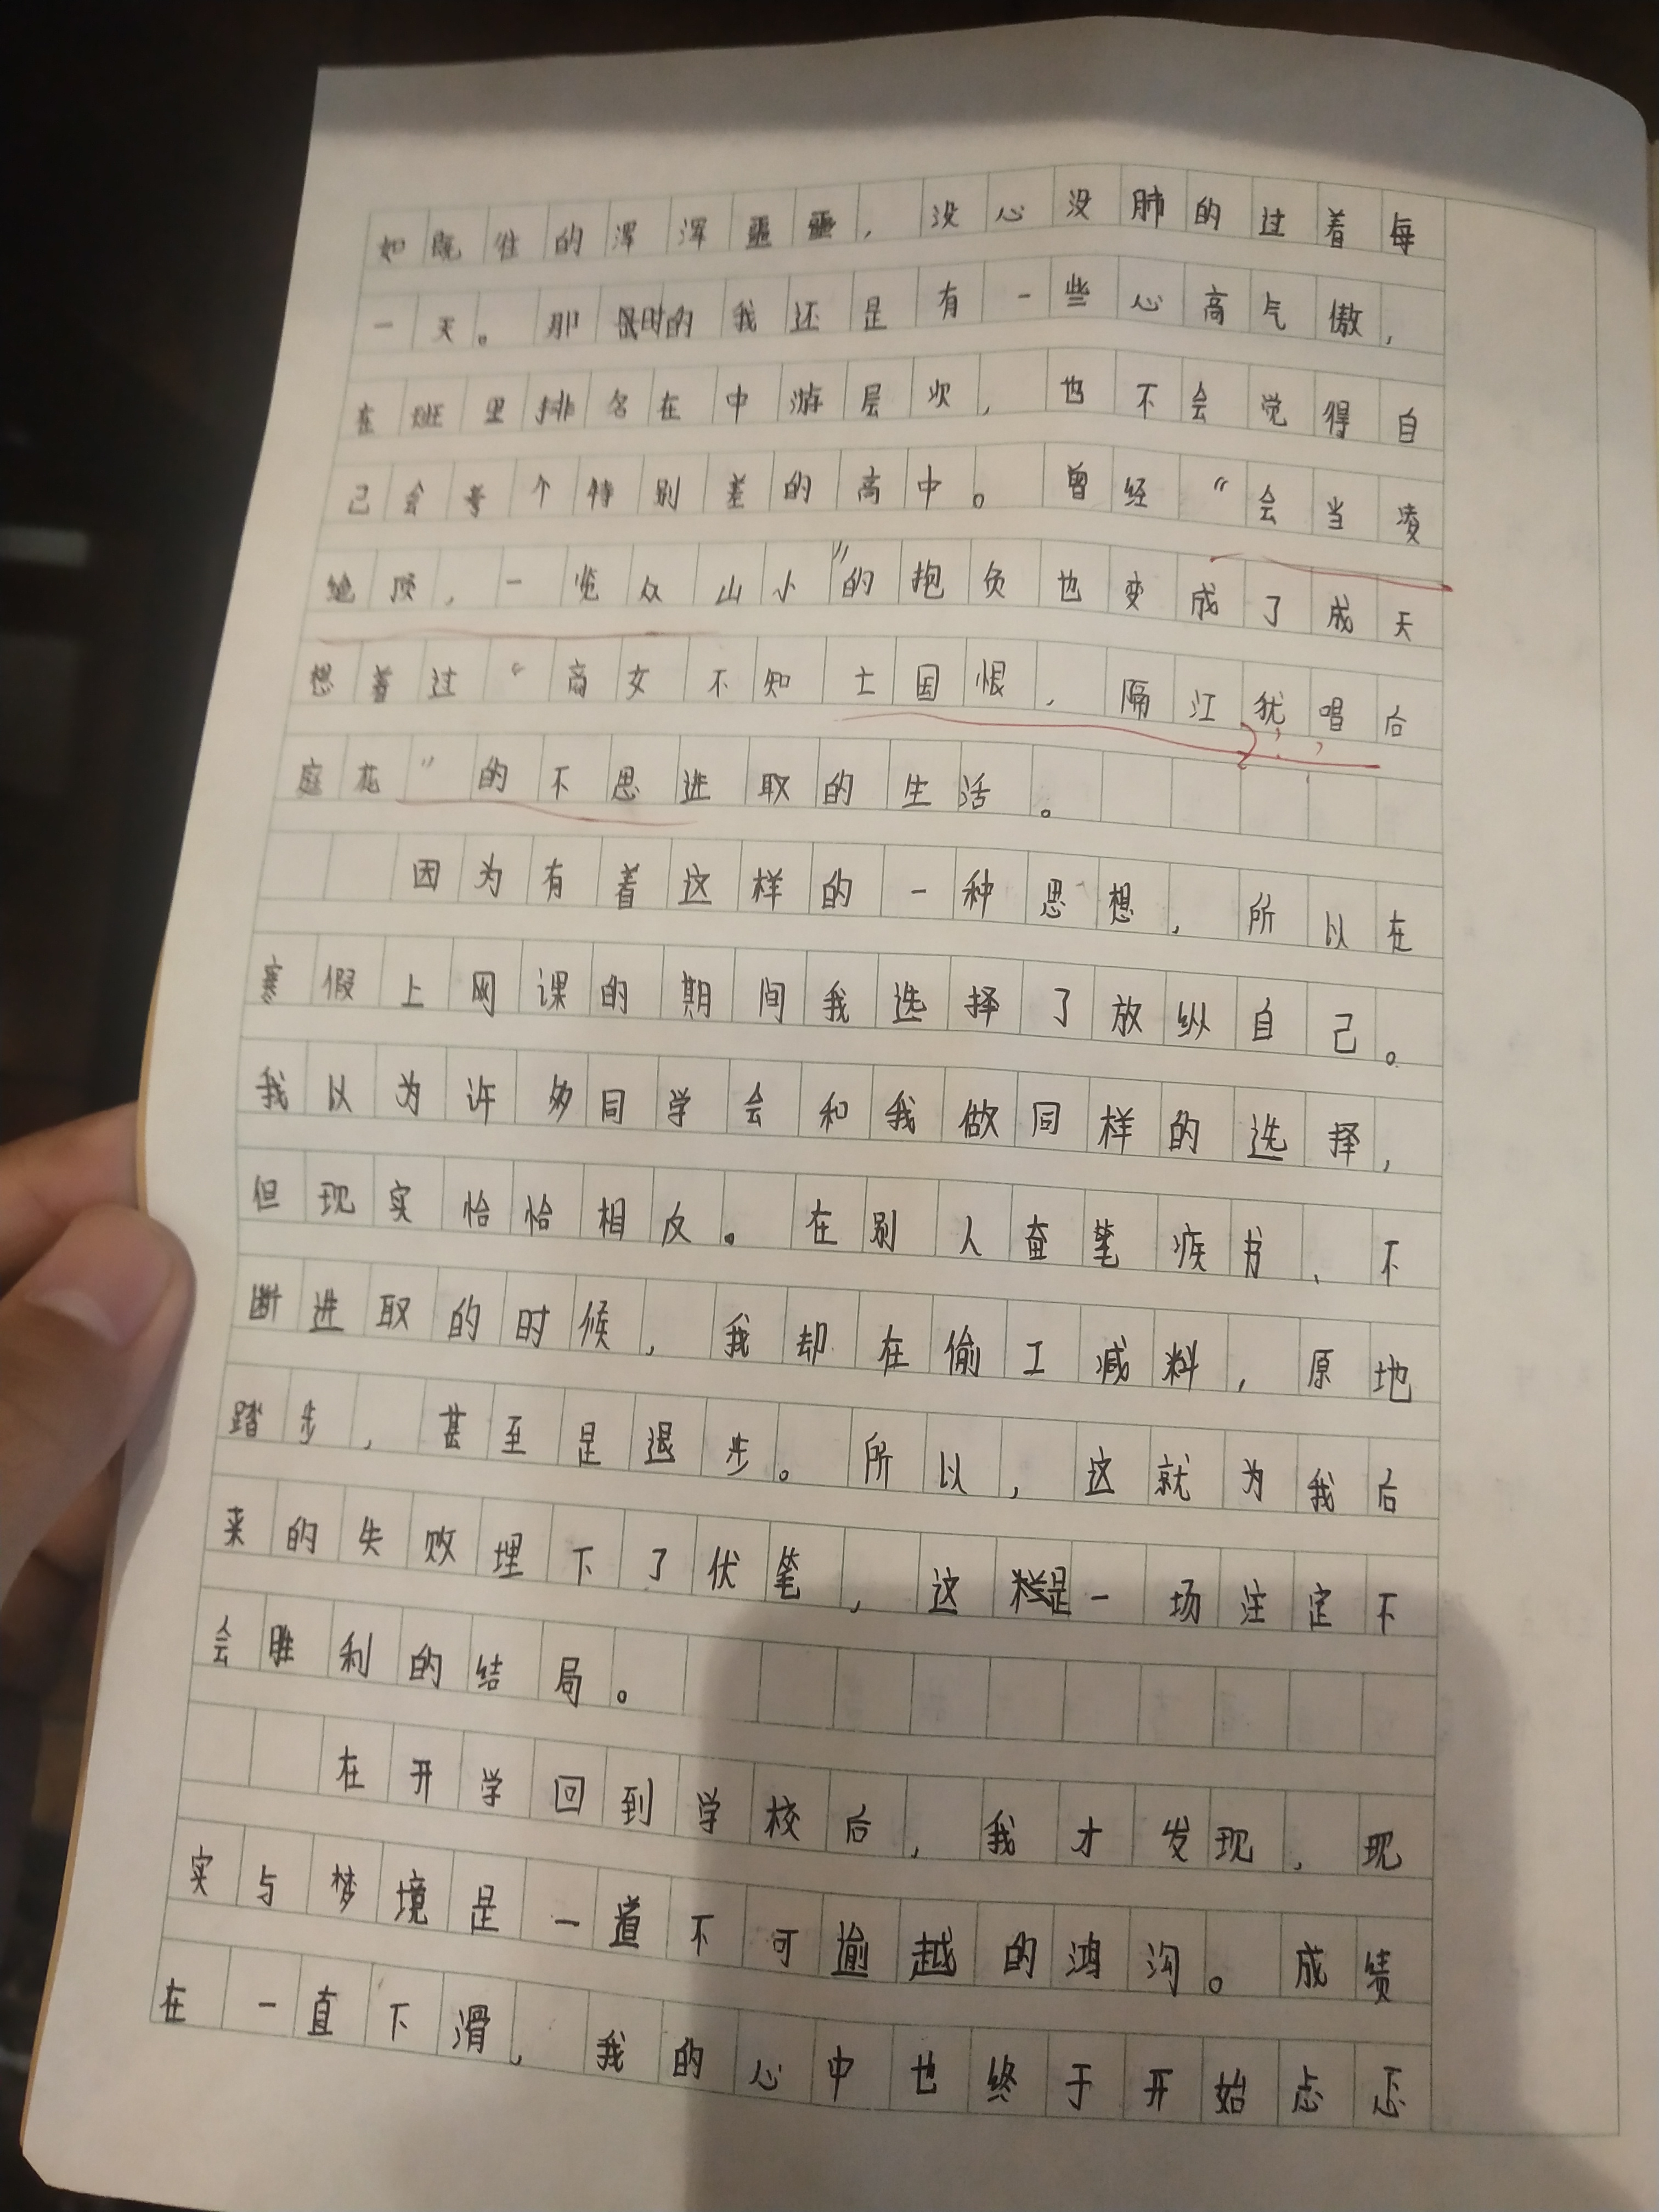 如既往的浑浑噩噩，没心没肺的过着每
一天。那时的我还是有一些心高气傲，
在班里排名在中游层次，也不会觉得自
己会考个特别差的高中。曾经“会当凌
绝顶，一览众山小”的抱负也变成了成天
想着过“商女不知亡国恨，隔江犹唱后
庭花”的不思进取的生活。
因为有着这样的一种思想，所以在
寒假上网课的期间我选择了放纵自己。
我以为许多同学会和我做同样的选择，
但现实恰恰相反。在别人奋笔疾书、不
断进取的时候，我却在偷工减料，原地
踏步，甚至是退步。所以，这就为我后
来的失败埋下了伏笔，这是一场注定不
会胜利的结局。
在开学回到学校后，我才发现，现
实与梦境是一道不可逾越的鸿沟。成绩
在一直下滑，我的心中也终于开始忐忑